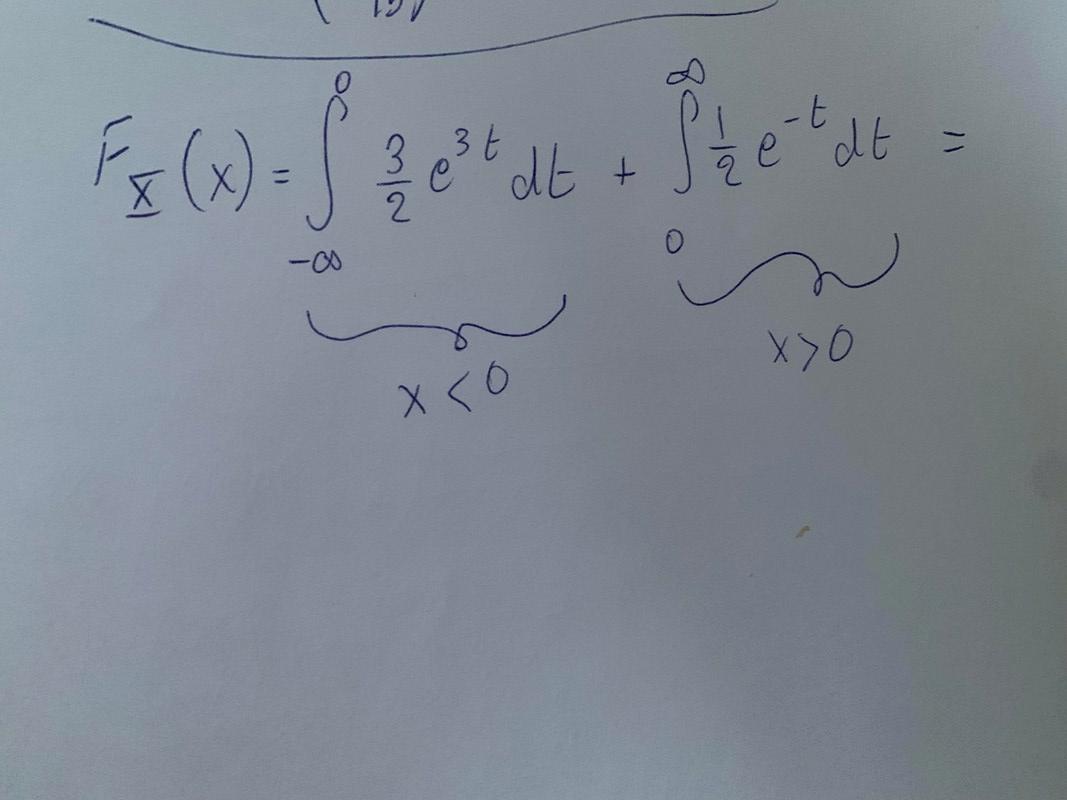 F_X(x) = ∫_{-∞}^{0} 3/2 e^{3t} dt + ∫_{0}^{∞} 1/2 e^{-t} dt =
x < 0 x > 0